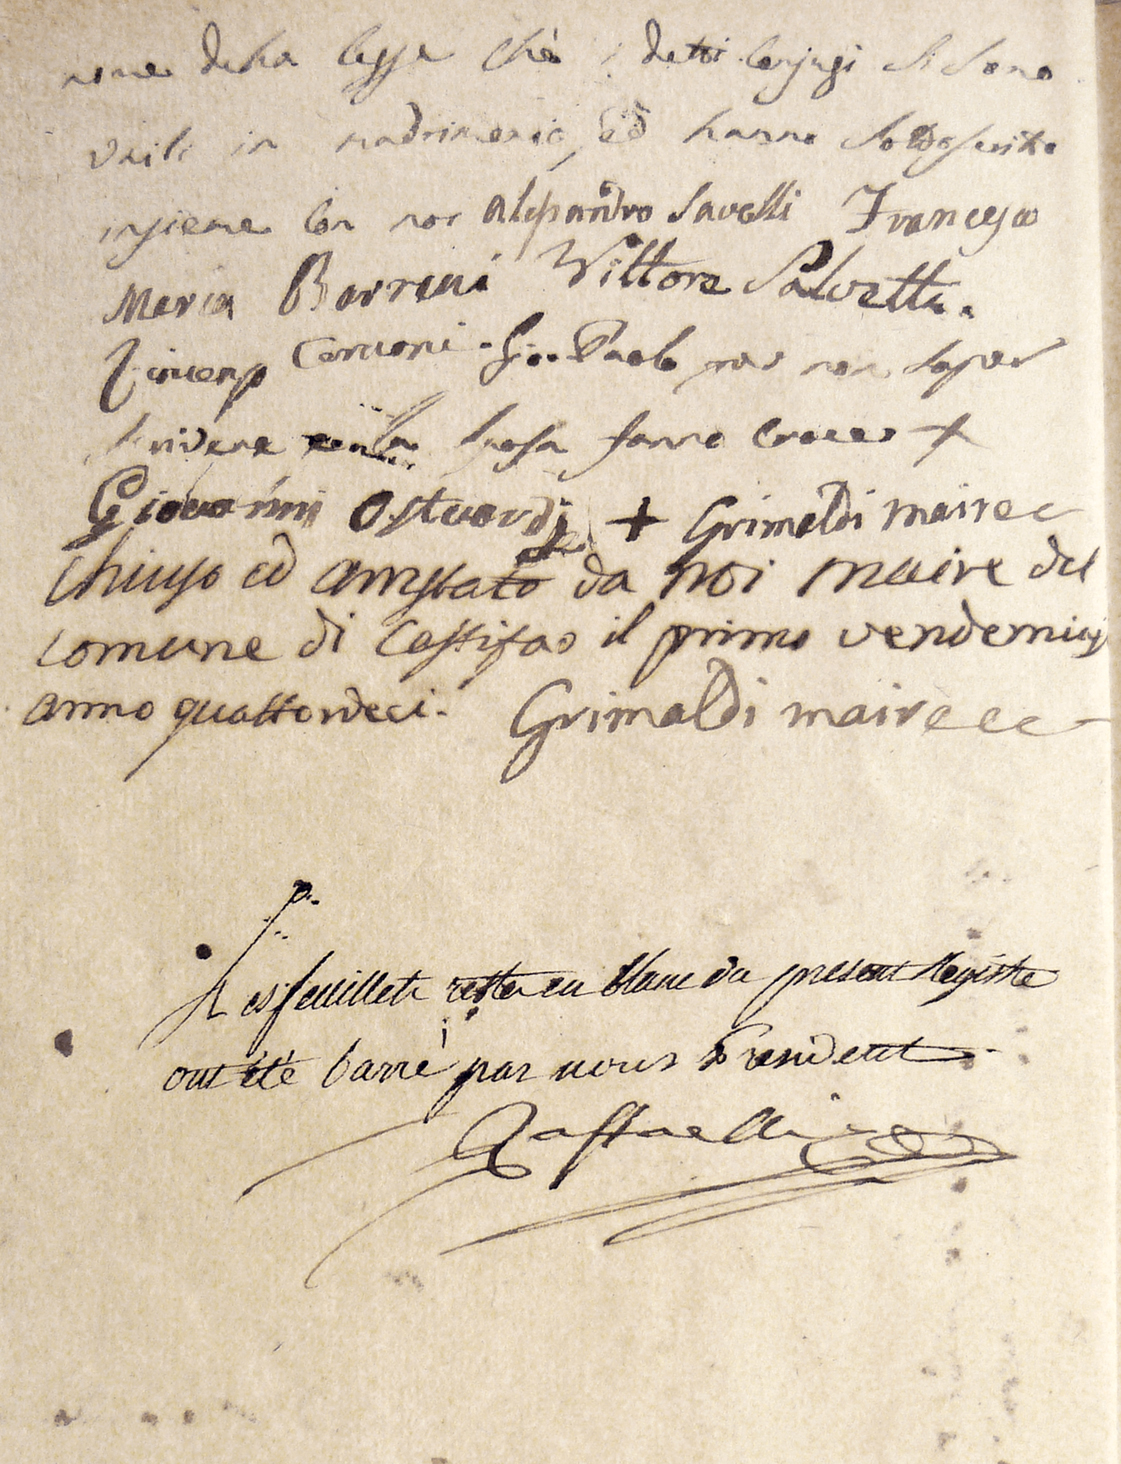 nome della legge che i detti conjugi si sono
uniti in madrimonio, ed hanno sottoscritto
insieme con noi Alesandro Savelli Francesco
Maria Barrini Vittore Salvetti.
Vincenzo Carcioni. Gio. Paolo per non saper
scrivere sposa fanno croce +
Giovanni + Grimaldi maire
Chiuso ed arrestato da noi maire del
comune di Castifao il primo vendemiaj
anno quattordeci. Grimaldi maire
Les feuillets restes en blanc du present Registre
ont été barré par nous President
Raffaelli